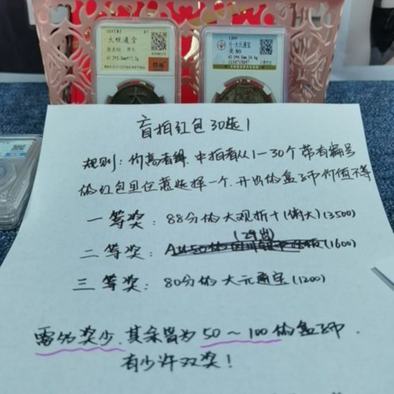 大观通宝
大元通宝
盲拍红包30选1
规则：价高者得，中拍者从1—30个带有编号
的红包里任意选择一个，开出的盒子币价值不等
一等奖：88分的大观折十(俏大)(3500)
(29省)
二等奖：(1600)
三等奖：80分的大元通宝(1200)
雷多奖少，其余皆为50～100的盒子币
有少许双奖！